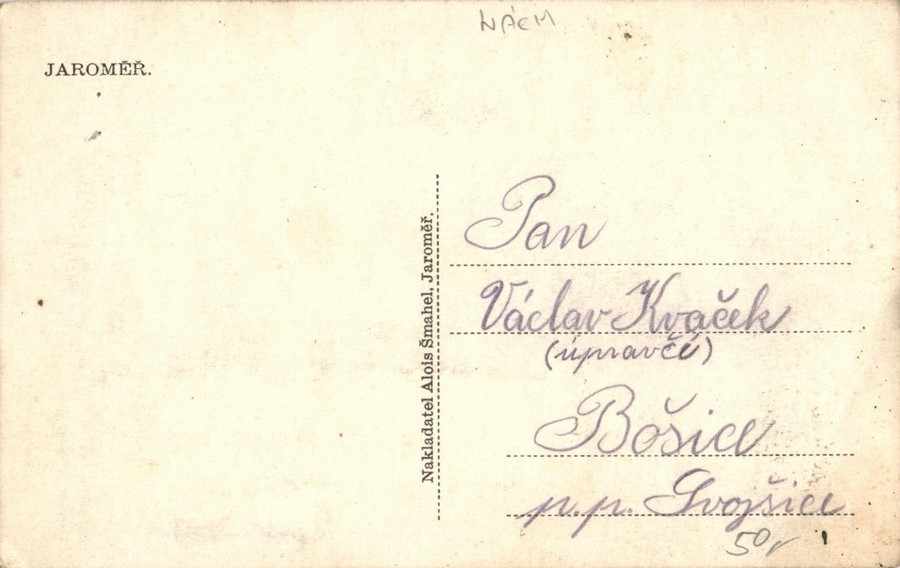 NÁCH
JAROMĚŘ.
Nakladatel Alois Šmahel, Jaroměř.
Pan
Václav Kvaček
(úpravčí)
Bošice
p.p. Svojšice
50